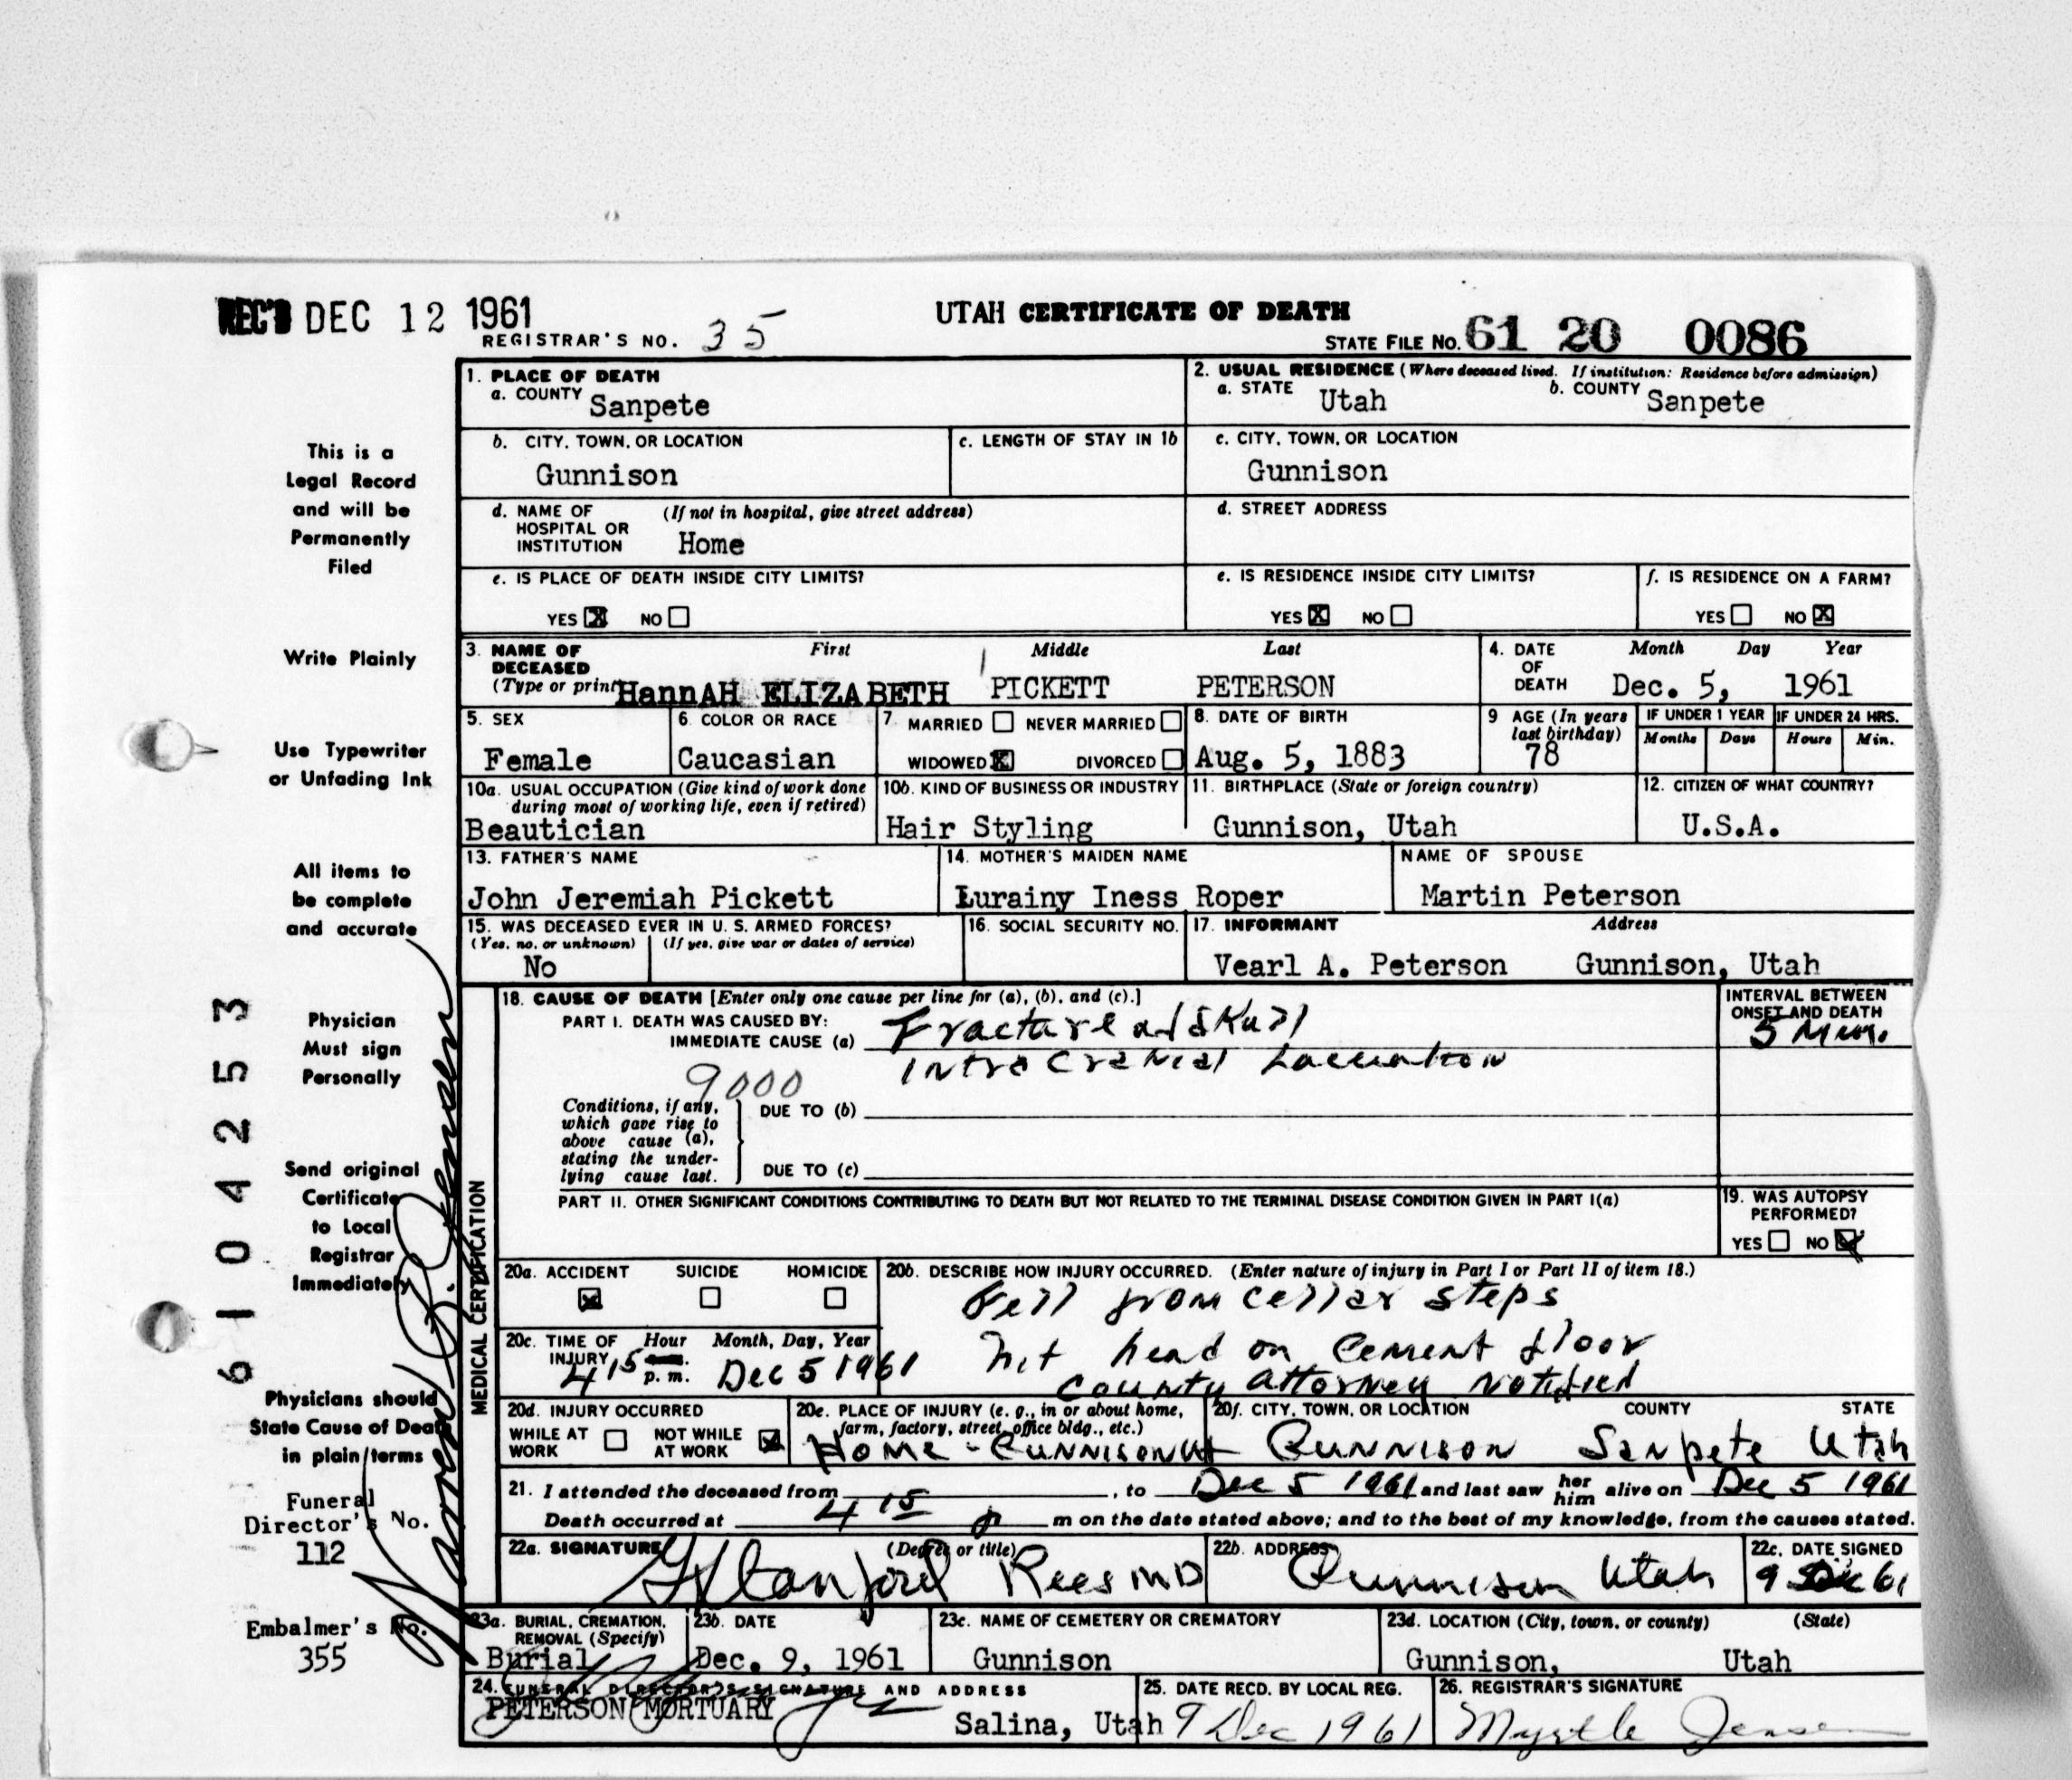 REC'D DEC 12 1961
UTAH CERTIFICATE OF DEATH
REGISTRAR'S NO. 35
STATE FILE NO. 61 20 0086
1. PLACE OF DEATH
a. COUNTY Sanpete
2. USUAL RESIDENCE (Where deceased lived. If institution: Residence before admission)
a. STATE Utah b. COUNTY Sanpete
b. CITY, TOWN, OR LOCATION
Gunnison
c. LENGTH OF STAY IN 1b
c. CITY, TOWN, OR LOCATION
Gunnison
d. NAME OF HOSPITAL OR INSTITUTION (If not in hospital, give street address)
Home
d. STREET ADDRESS
e. IS PLACE OF DEATH INSIDE CITY LIMITS?
YES X NO
e. IS RESIDENCE INSIDE CITY LIMITS?
YES X NO
f. IS RESIDENCE ON A FARM?
YES NO X
3. NAME OF DECEASED (Type or print) First Middle Last
HannAH ELIZABETH PICKETT PETERSON
4. DATE OF DEATH Month Day Year
Dec. 5, 1961
5. SEX
Female
6. COLOR OR RACE
Caucasian
7. MARRIED NEVER MARRIED
WIDOWED X DIVORCED
8. DATE OF BIRTH
Aug. 5, 1883
9 AGE (In years last birthday)
78
IF UNDER 1 YEAR
Months Days
IF UNDER 24 HRS.
Hours Min.
10a. USUAL OCCUPATION (Give kind of work done during most of working life, even if retired)
Beautician
10b. KIND OF BUSINESS OR INDUSTRY
Hair Styling
11. BIRTHPLACE (State or foreign country)
Gunnison, Utah
12. CITIZEN OF WHAT COUNTRY?
U.S.A.
13. FATHER'S NAME
John Jeremiah Pickett
14. MOTHER'S MAIDEN NAME
Lurainy Iness Roper
NAME OF SPOUSE
Martin Peterson
15. WAS DECEASED EVER IN U. S. ARMED FORCES?
(Yes, no, or unknown) (If yes, give war or dates of service)
No
16. SOCIAL SECURITY NO.
17. INFORMANT Address
Vearl A. Peterson Gunnison, Utah
MEDICAL CERTIFICATION
18. CAUSE OF DEATH [Enter only one cause per line for (a), (b), and (c).]
PART I. DEATH WAS CAUSED BY:
IMMEDIATE CAUSE (a) Fractured Skull
Intra Cranial
INTERVAL BETWEEN ONSET AND DEATH
5 Min.
9000
Conditions, if any, which gave rise to above cause (a), stating the underlying cause last.
DUE TO (b)
DUE TO (c)
PART II. OTHER SIGNIFICANT CONDITIONS CONTRIBUTING TO DEATH BUT NOT RELATED TO THE TERMINAL DISEASE CONDITION GIVEN IN PART I(a)
19. WAS AUTOPSY PERFORMED?
YES NO X
20a. ACCIDENT SUICIDE HOMICIDE
X
20b. DESCRIBE HOW INJURY OCCURRED. (Enter nature of injury in Part I or Part II of item 18.)
Fell from cellar steps
hit head on Cement floor
County Attorney Notified
20c. TIME OF INJURY Hour Month, Day, Year
4 15 p. m. Dec 5 1961
20d. INJURY OCCURRED
WHILE AT WORK NOT WHILE AT WORK X
20e. PLACE OF INJURY (e. g., in or about home, farm, factory, street, office bldg., etc.)
Home - Gunnison Ut
20f. CITY, TOWN, OR LOCATION COUNTY STATE
Gunnison Sanpete Utah
21. I attended the deceased from , to Dec 5 1961 and last saw her him alive on Dec 5 1961
Death occurred at 4 15 p m on the date stated above; and to the best of my knowledge, from the causes stated.
22a. SIGNATURE (Degree or title)
G Stanford Rees MD
22b. ADDRESS
Gunnison Utah
22c. DATE SIGNED
9 Dec 61
23a. BURIAL, CREMATION, REMOVAL (Specify)
Burial
23b. DATE
Dec. 9, 1961
23c. NAME OF CEMETERY OR CREMATORY
Gunnison
23d. LOCATION (City, town, or county) (State)
Gunnison, Utah
24. FUNERAL DIRECTOR'S SIGNATURE AND ADDRESS
PETERSON MORTUARY
Salina, Utah
25. DATE RECD. BY LOCAL REG.
9 Dec 1961
26. REGISTRAR'S SIGNATURE
Myrtle Jensen
This is a
Legal Record
and will be
Permanently
Filed
Write Plainly
Use Typewriter
or Unfading Ink
All items to
be complete
and accurate
Physician
Must sign
Personally
Send original
Certificate
to Local
Registrar
Immediately
Physicians should
State Cause of Death
in plain terms
Funeral
Director's No.
112
Embalmer's No.
355
6104253